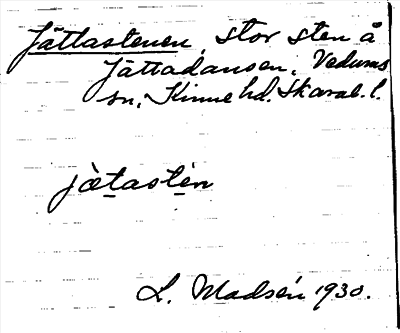 Jättastenen, stor sten å
Jättadansen, Vedums
sn, Kinne hd. Skarab. l.
jætastèn
L. Madsén 1930.